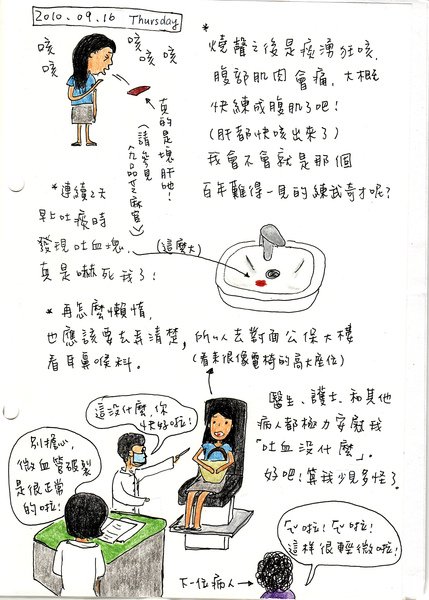 2010.09.16 Thursday
咳
咳
咳
咳
咳
咳
真的是塊肝吔!
(請參見
九品芝麻官)
*燒聲之後是痰湧狂咳,
腹部肌肉會痛,大概
快練成腹肌了吧!
(肝都快咳出來了)
我會不會就是那個
百年難得一見的練武奇才呢?
*連續2天
早上吐痰時
發現吐血塊,
真是嚇死我了!
(這麼大)
*再怎麼懶惰,
也應該要去弄清楚,所以去對面公保大樓
看耳鼻喉科。
(看來很像電椅的高大座位)
這沒什麼,你
快好啦!
別擔心,
微血管破裂
是很正常
的啦!
醫生、護士、和其他
病人都極力安慰我
「吐血沒什麼」。
好吧!算我少見多怪了。
下一位病人→
這樣很輕微啦!